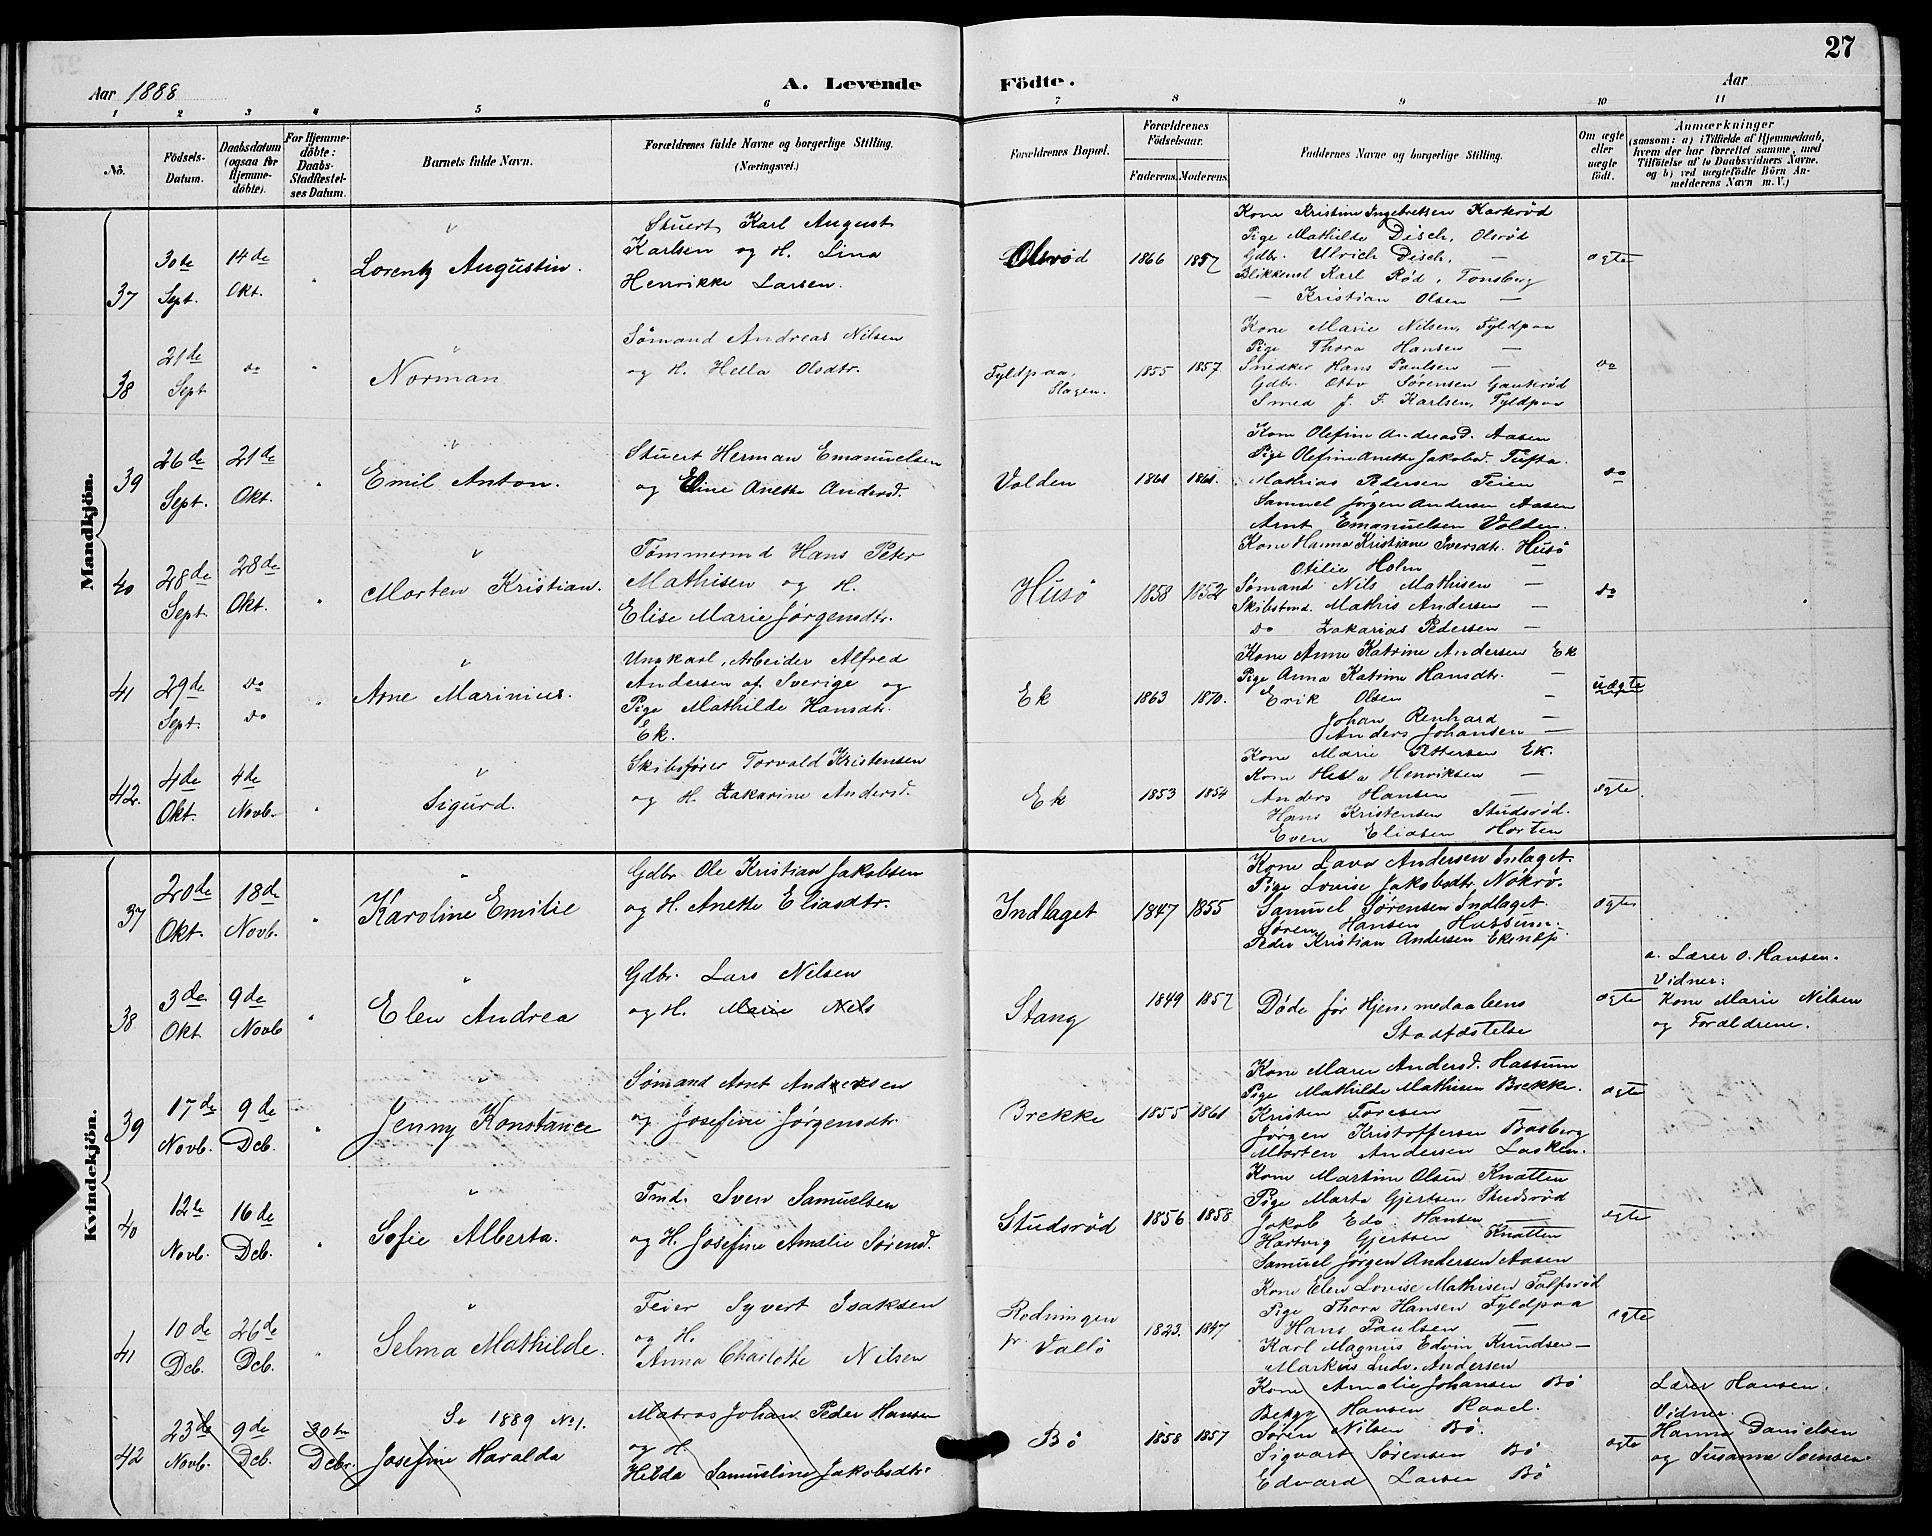 27
Aar 1888
A. Levende Födte.
Aar
1 2 3 4 5 6 7 8 9 10 11
No.
Födsels-Datum.
Daabsdatum (ogsaa for Hjemme-döbte).
For Hjemme-döbte: Daabs-Stadfæstel-ses Datum.
Barnets fulde Navn.
Forældrenes fulde Navne og borgerlige Stilling.
(Næringsvei.)
Forældrenes Bopæl.
Forældrenes Födselsaar.
Faderens. Moderens.
Faddernes Navne og borgerlige Stilling.
Om ægte eller uægte födt.
Anmærkninger
(saasom: a) i Tilfælde af Hjemmedaab, hvem der har forrettet samme, med Tilföielse af to Daabsvidners Navne. og b) ved uægtefödte Börn An-melderens Navn m. V.)
Mandkjön.
37
30te Sept.
14de Okt.
"
Lorentz Augustin.
Stuert Karl August
Karlsen og H. Lina
Henrikke Larsen.
Olsrød
1866 1857
Kone Kristine Ingebretsen Karkrød
Pige Mathilde Disch, Olsrød
Gdbr. Ulrich Disch, —
Blikkensl Karl Rød, Tonsberg
— Kristian Olsen —
ægte
38
21de Sept
do
"
Norman
Sømand Andreas Nilsen
og H. Hella Olsdtr.
Fyldpaa, Slagen.
1855 1857
Kone Marie Nilsen, Fyldpaa
Pige Thora Hansen —
Snedker Hans Paulsen —
Gdbr. Otto Sørensen Gaukrød
Smed J. F. Karlsen, Fyldpaa
do
39
26de Sept.
21de Okt.
"
Emil Anton.
Stuert Herman Emanuelsen
og Eline Anette Andersd.
Volden
1861 1861.
Kone Olefine Andreasd. Aasen
Pige Olefine Anette Jakobsd. Tufta.
Mathias Pedersen Feien
Samuel Jørgen Andersen Aasen
Arnt Emanuelsen Volden.
do
40
28de Sept.
28de Okt.
"
Morten Kristian.
Tømmermd Hans Peter
Mathisen og H.
Elise Marie Jørgensdtr.
Husö
1858 1852
Kone Hanna Kristiane Iversdtr. Husö
Otilie Holm —
Sømand Nils Mathisen —
Skibstmd. Mathis Andersen —
do Zakarias Pedersen —
do
41
29de Sept.
do do
"
Arne Marinius.
Ungkarl, Arbeider Alfred
Andersen af Sverige og
Pige Mathilde Hansdtr.
Ek.
Ek
1863 1870.
Kone Anne Katrine Andersen Ek
Pige Anna Katrine Hansdtr. —
Erik Olsen —
Johan Renhard —
Anders Johansen —
uægte
42.
4de Okt.
4de Novb.
"
Sigurd.
Skibsfører Torvald Kristensen
og H. Zakarine Andersd.
Ek
1853 1854
Kone Marie Pettersen Ek.
Kone Hella Henriksen —
Anders Hansen —
Hans Kristensen Studsrød.
Even Eliasen Horten
ægte
Kvindekjön.
37
20de Okt.
18de Novb.
"
Karoline Emilie
Gdbr. Ole Kristian Jakobsen
og H. Anette Eliasdtr.
Indlaget
1847 1855
Kone Lava Andersen Inlaget.
Pige Lovise Jakobsdtr. Nøkrø.
Samuel Sørensen Indlaget
Søren Hansen Hassum
Peder Kristian Andersen Eknæs
ægte
38
3de Okt
9de Novb
"
Elen Andrea
Gdbr. Lars Nilsen
og H. Marie Nels
Stang
1849 1857
Døde før Hjemmedaabens
Stadfæstelse
ægte
a. Lærer O. Hansen.
Vidner:
Kone Marie Nilsen
og Forældrene.
39
17de Novb.
9de Dcb.
"
Jenny Konstance
Sømand Arnt Andersen
og Josefine Jørgensdtr.
Brekke
1855 1861
Kone Maren Andersd. Hassum
Pige Mathilde Mathisen Brekke.
Kristen Toresen —
Jørgen Kristoffersen Basberg
Morten Andersen Lasken.
ægte
40
12te Novb.
16de Dcb.
"
Sofie Alberta.
Tmd. Sven Samuelsen
og H. Josefine Amalie Sørensd.
Studsrød
1856 1858
Kone Martine Olsen Knatten
Pige Marta Gjertsen Studsrød
Jakob Edv. Hansen —
Hartvig Gjertsen Knatten
Samuel Jørgen Andersen Aasen
ægte
41
10de Dcb.
26de Dcb.
"
Selma Mathilde.
Feier Syvert Isaksen
og H.
Anna Charlotte Nilsen
Rodningen
v. Vallö
1823. 1847
Kone Elen Lovise Mathisen Tolfsrød
Pige Thora Hansen Fyldpaa
Hans Paulsen —
Karl Magnus Edvin Knudsen —
Markus Ludv. Andersen
ægte
42
23de Novb.
9de Dcb.
30te Dcbr.
Se 1889 No 1.
Josefine Haralda
Matros Johan Peder Hansen
og H.
Hilda Samueline Jakobsdtr.
Bö
1858 1857
Kone Amalie Johansen Bö
Betzy Hansen Raael.
Søren Nilsen Bö.
Sigvart Sørensen Bö
Edvard Larsen Bö
ægte
Lærer Hansen.
Vidner
Hanna Danielsen
og Susanne Svensen.